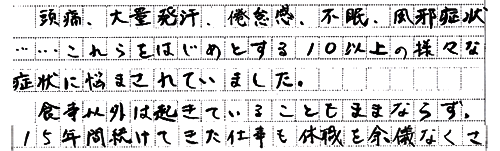 頭痛、大量発汗、倦怠感、不眠、風邪症状
……これらをはじめとする10以上の様々な
症状に悩まされていました。
食事以外は起きていることもままならず、
15年間続けてきた仕事も休職を余儀なくさ